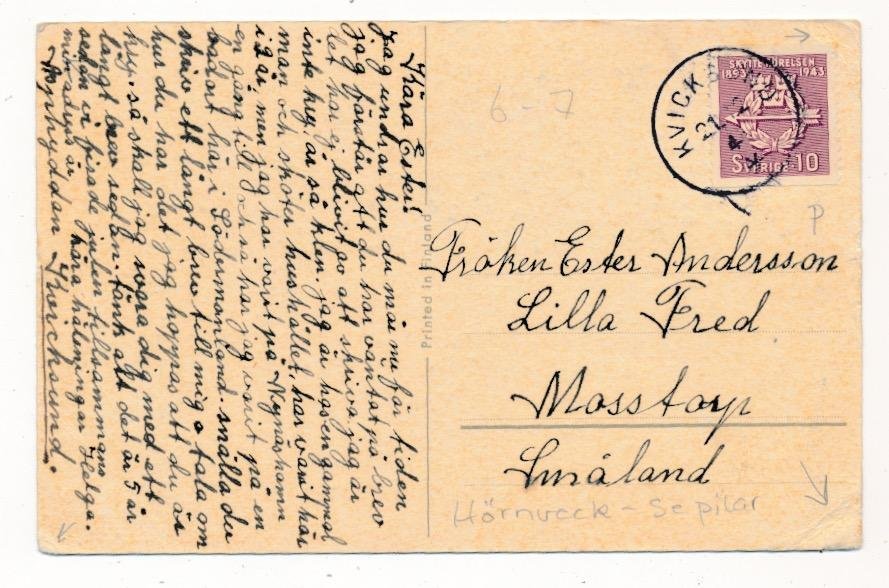 Kära Ester!
Jag undrar hur du mår nu för tiden
jag förstår att du har väntat på brev
det har ej blivit av att skriva jag är
inte kry, är så klen jag är hos en gammal
man och sköter hushållet, har varit här
i 2 år, men jag har varit på Nynäshamn
en gång till, och så har jag varit på en
badort här i Södermanland. snälla du
skriv ett långt brev till mig o tala om
hur du har det jag hoppas att du är
kry. så skall jag svara dig med ett
långt brev sedan. tänk att det är 5 år
sedan vi firade julen tillsammans
min adress är, kära hälsningar Helga.
Nyhyddan Kvicksund.
Printed in Finland
6-7
SKYTTERÖRELSEN
1893 1943
SVERIGE 10
KVICKSUND
21. 2
4
P
Fröken Ester Andersson
Lilla Fred
Mosstorp
Småland
Hörnveck - Se pilar